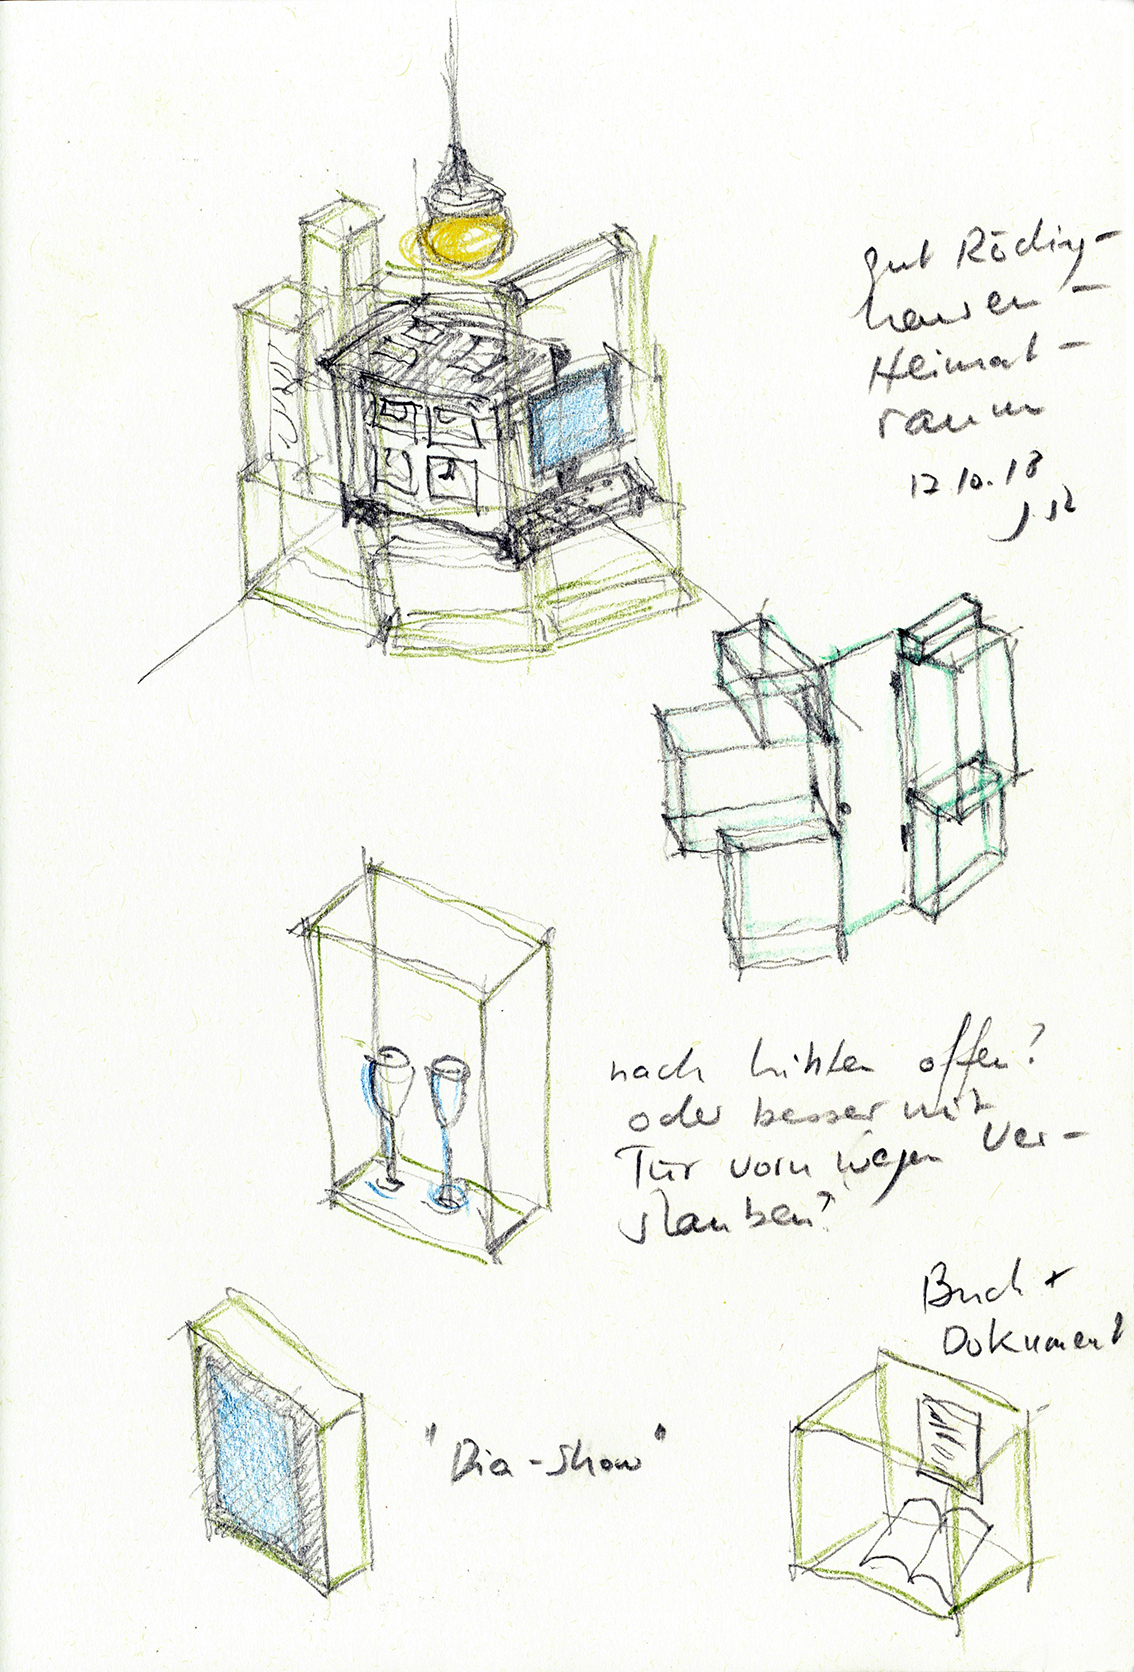 gut Röding-
hausen -
Heimat -
raum
12.10.18
nach hinten offen?
oder besser mit
Tür vorn wegen Ver-
stauben?
Buch +
Dokument
"Dia-Show"